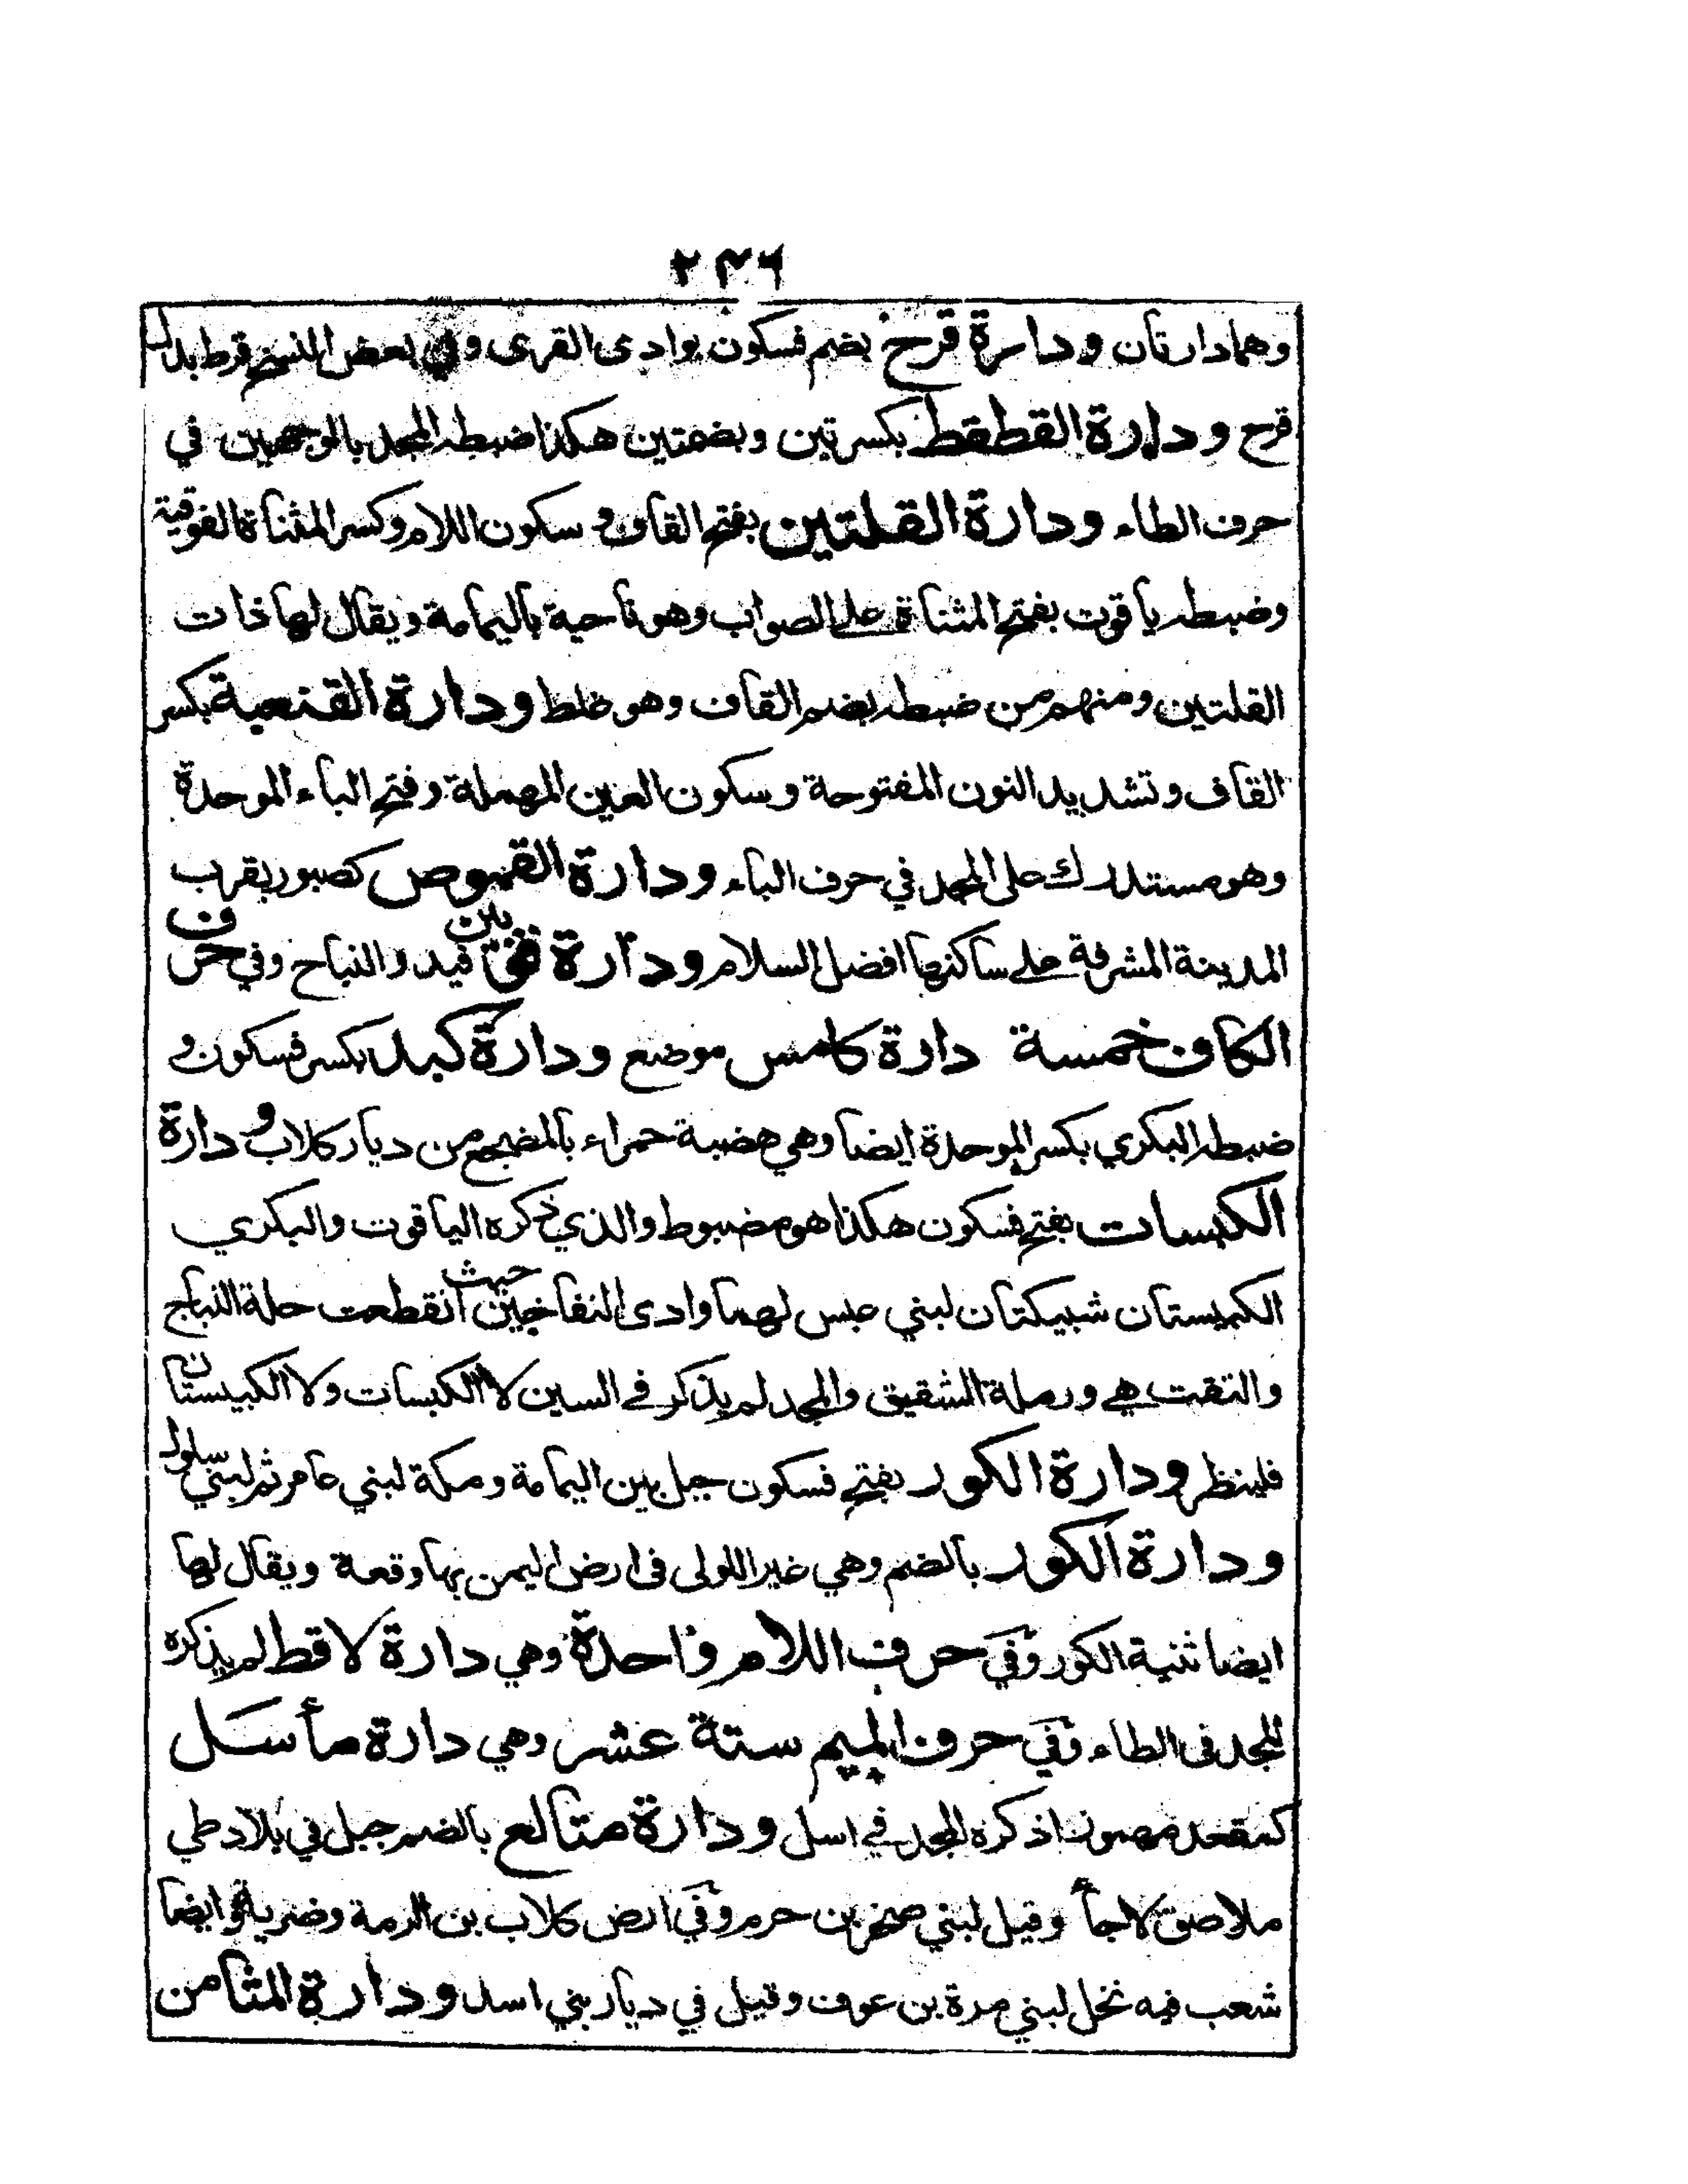 ٢٣٦
وهما دارتان ودارة قرح بضم فسكون بوادى القرى وفي بعض النسخ قرط بدل
قرح ودارة القطقط بكسرتين وبضمتين هكذا ضبطه المجد بالوجهين في
حرف الطاء ودارة القلتين بفتح القاف و سكون اللام وكسر المثناة الفوقية
وضبطه ياقوت بفتح المثناة على الصواب وهو ناحية باليمامة ويقال لها ذات
القلتين ومنهم من ضبطه بضم القاف وهو غلط ودارة القنعبة بكسر
القاف وتشديد النون المفتوحة وسكون العين المهملة وفتح الباء الموحدة
وهو مستدرك على المجد في حرف الباء ودارة القموص كصبور بقرب
المدينة المشرفة على ساكنها افضل السلام ودارة قو بين فيد والنباح وفي حرف
الكاف خمسة دارة كامس موضع ودارة كبد بكسر فسكون و
ضبطه البكري بكسر الموحدة ايضا وهي هضبة حمراء بالمضجع من ديار كلاب و دارة
الكبسات بفتح فسكون هكذا هو مضبوط والذي ذكره الياقوت والبكري
الكبيستان شبيكتان لبني عبس لهما وادى النفاخين حيث انقطعت حلة النباج
والتقت هي ورملة الشقيق والمجد لم يذكر في السين لا الكبسات ولا الكبيستان
فلينظر ودارة الكور بفتح فسكون جبل بين اليمامة ومكة لبني عامر ثم لبني سلول
ودارة الكور بالضم وهي غير اللولى فى ارض اليمن بها وقعة ويقال لها
ايضا ثنية الكور وفي حرف اللام واحدة وهي دارة لاقط لم يذكره
المجد فى الطاء وفي حرف الميم ستة عشر وهي دارة مأسل
كمقعد مهموزا ذكره المجد في اسل ودارة متالع بالضم جبل في بلاد طي
ملاصق لاجأ وقيل لبني صخر بن حرم وفي ارض كلاب بن الرمة وضرية وايضا
شعب فيه نخل لبني مرة بن عوف وقيل في ديار بني اسد ودارة المثامن